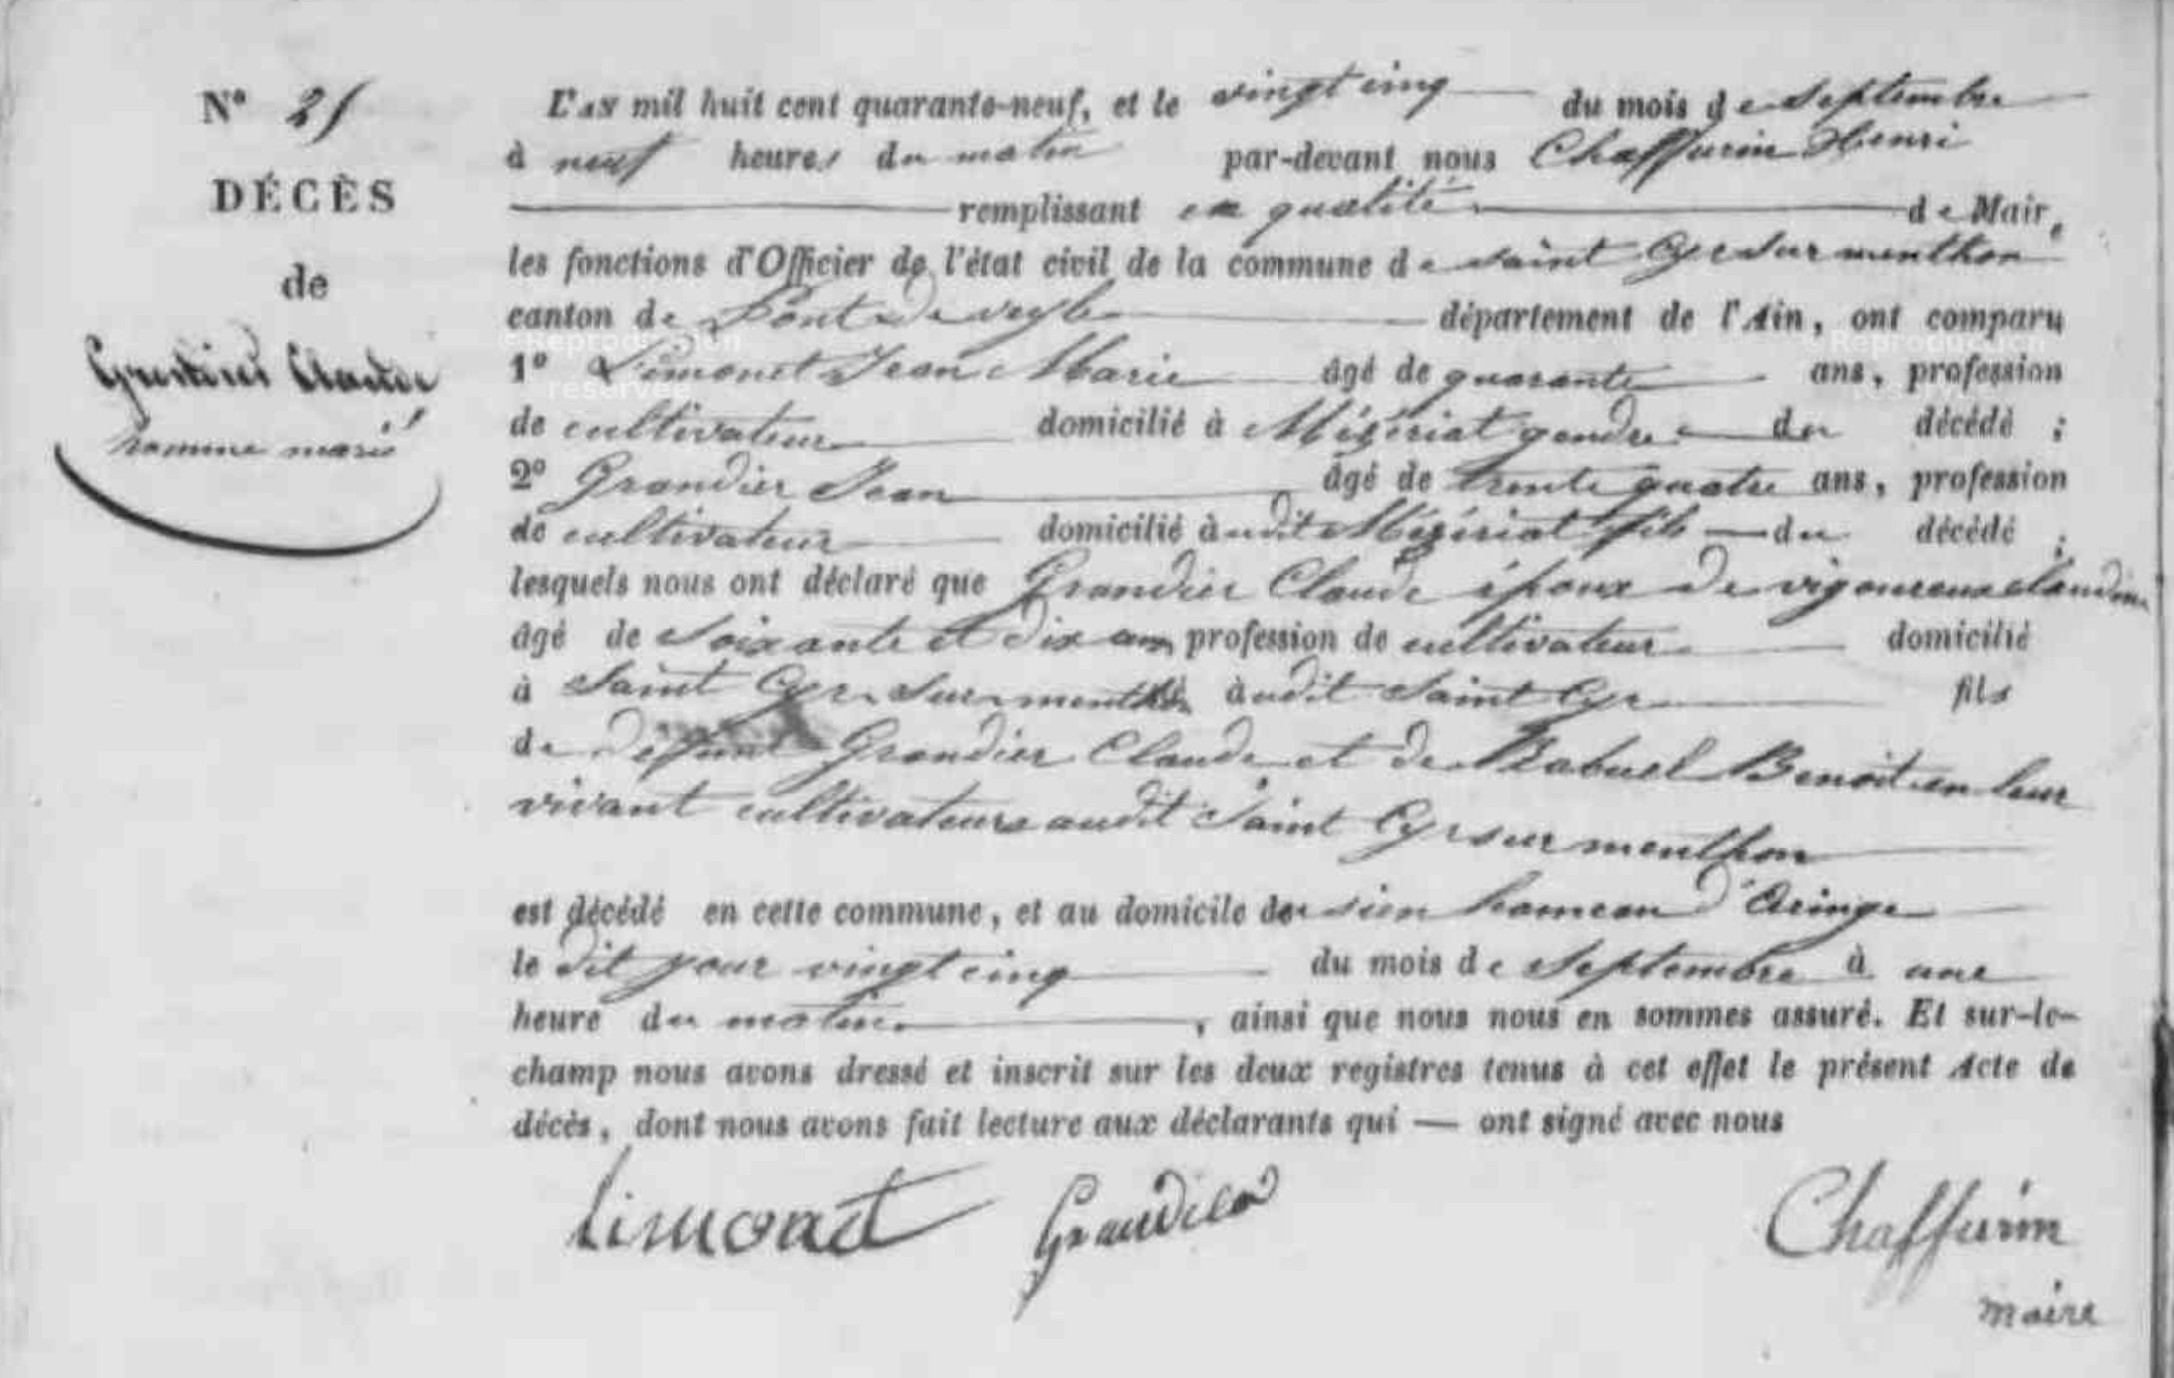 N° 25
DÉCÈS
de
Grandier Claude
homme marié
L'an mil huit cent quarante-neuf, et le vingt cinq du mois de Septembre
à neuf heures du matin par-devant nous Chaffurin Henri
remplissant en qualité de Maire
les fonctions d'Officier de l'état civil de la commune de Saint Cyr Sur menthon
canton de Pont de veyle département de l'Ain, ont comparu
1° Limonet Jean Marie âgé de quarante ans, profession
de cultivateur domicilié à Mézériat gendre du décédé ;
2° Grandier Jean âgé de trente quatre ans, profession
de cultivateur domicilié audit Mézériat fils du décédé ;
lesquels nous ont déclaré que Grandier Claude époux de vigoureux claudine
âgé de Soixante et dix ans profession de cultivateur domicilié
à Saint Cyr Sur menthon audit Saint Cyr fils
de defunt Grandier Claude et de Rabuel Benoit en leur
vivant cultivateurs audit Saint Cyr sur menthon
est décédé en cette commune, et au domicile du sien hameau d'Aringe
le dit jour vingt cinq du mois de Septembre à une
heure du matin, ainsi que nous nous en sommes assuré. Et sur-le-
champ nous avons dressé et inscrit sur les deux registres tenus à cet effet le présent Acte de
décès, dont nous avons fait lecture aux déclarants qui — ont signé avec nous
Limonet Grandier Chaffurin
maire